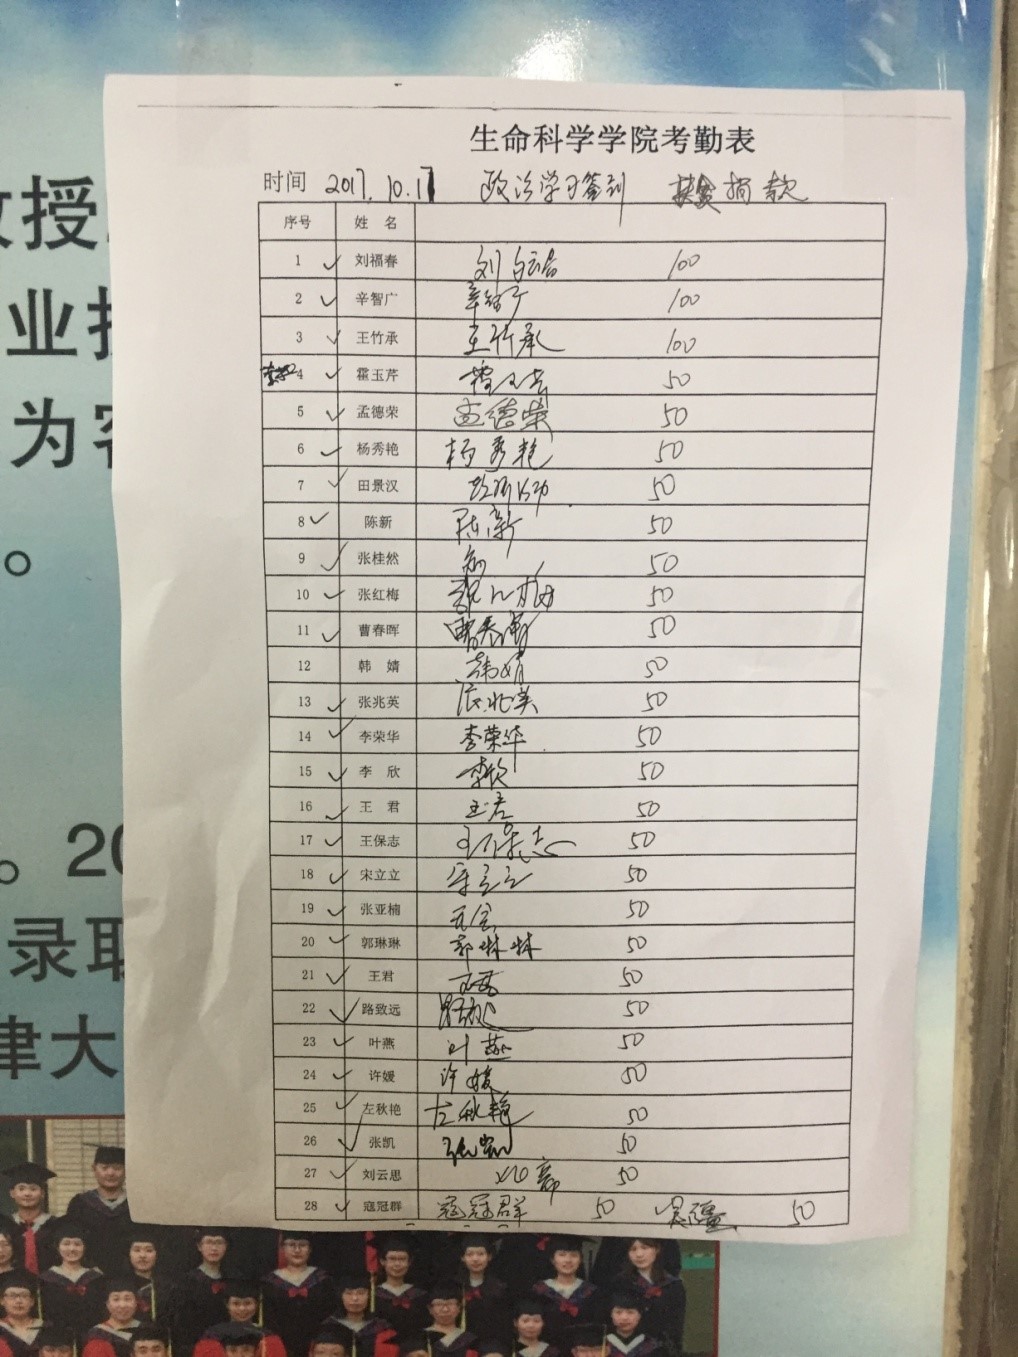 生命科学学院考勤表
时间 2017.10.17 政治学习签到 扶贫捐款
序号 姓 名
1 ✓ 刘福春 100
2 ✓ 辛智广 辛智广 100
3 ✓ 王竹承 王竹承 100
4 ✓ 霍玉芹 50
5 ✓ 孟德荣 孟德荣 50
6 ✓ 杨秀艳 杨秀艳 50
7 ✓ 田景汉 50
8 ✓ 陈新 陈新 50
9 ✓ 张桂然 50
10 ✓ 张红梅 张红梅 50
11 ✓ 曹春晖 曹春晖 50
12 韩 婧 韩婧 50
13 ✓ 张兆英 张兆英 50
14 ✓ 李荣华 李荣华 50
15 ✓ 李 欣 李欣 50
16 ✓ 王 君 王君 50
17 ✓ 王保志 王保志 50
18 ✓ 宋立立 宋立立 50
19 ✓ 张亚楠 50
20 ✓ 郭琳琳 郭琳琳 50
21 ✓ 王君 50
22 ✓ 路致远 路致远 50
23 ✓ 叶燕 叶燕 50
24 ✓ 许媛 许媛 50
25 ✓ 左秋艳 左秋艳 50
26 ✓ 张凯 张凯 50
27 ✓ 刘云思 50
28 ✓ 寇冠群 寇冠群 50 ✓ 50
教授
业
为
。
。20
录取
津大